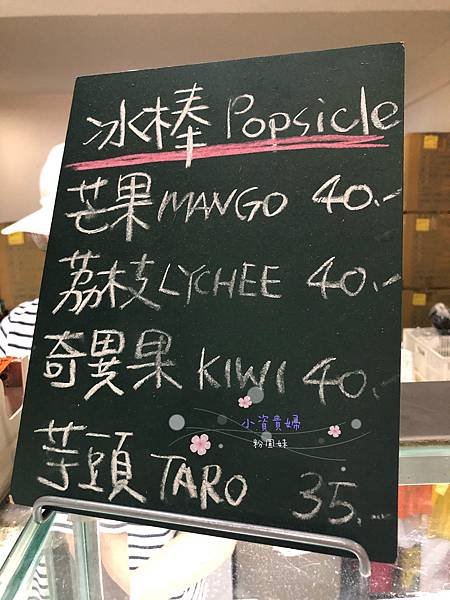 冰棒 Popsicle
芒果 MANGO 40.-
荔枝 LYCHEE 40.-
奇異果 KIWI 40.-
小資貴婦
粉圓妹
芋頭 TARO 35.-